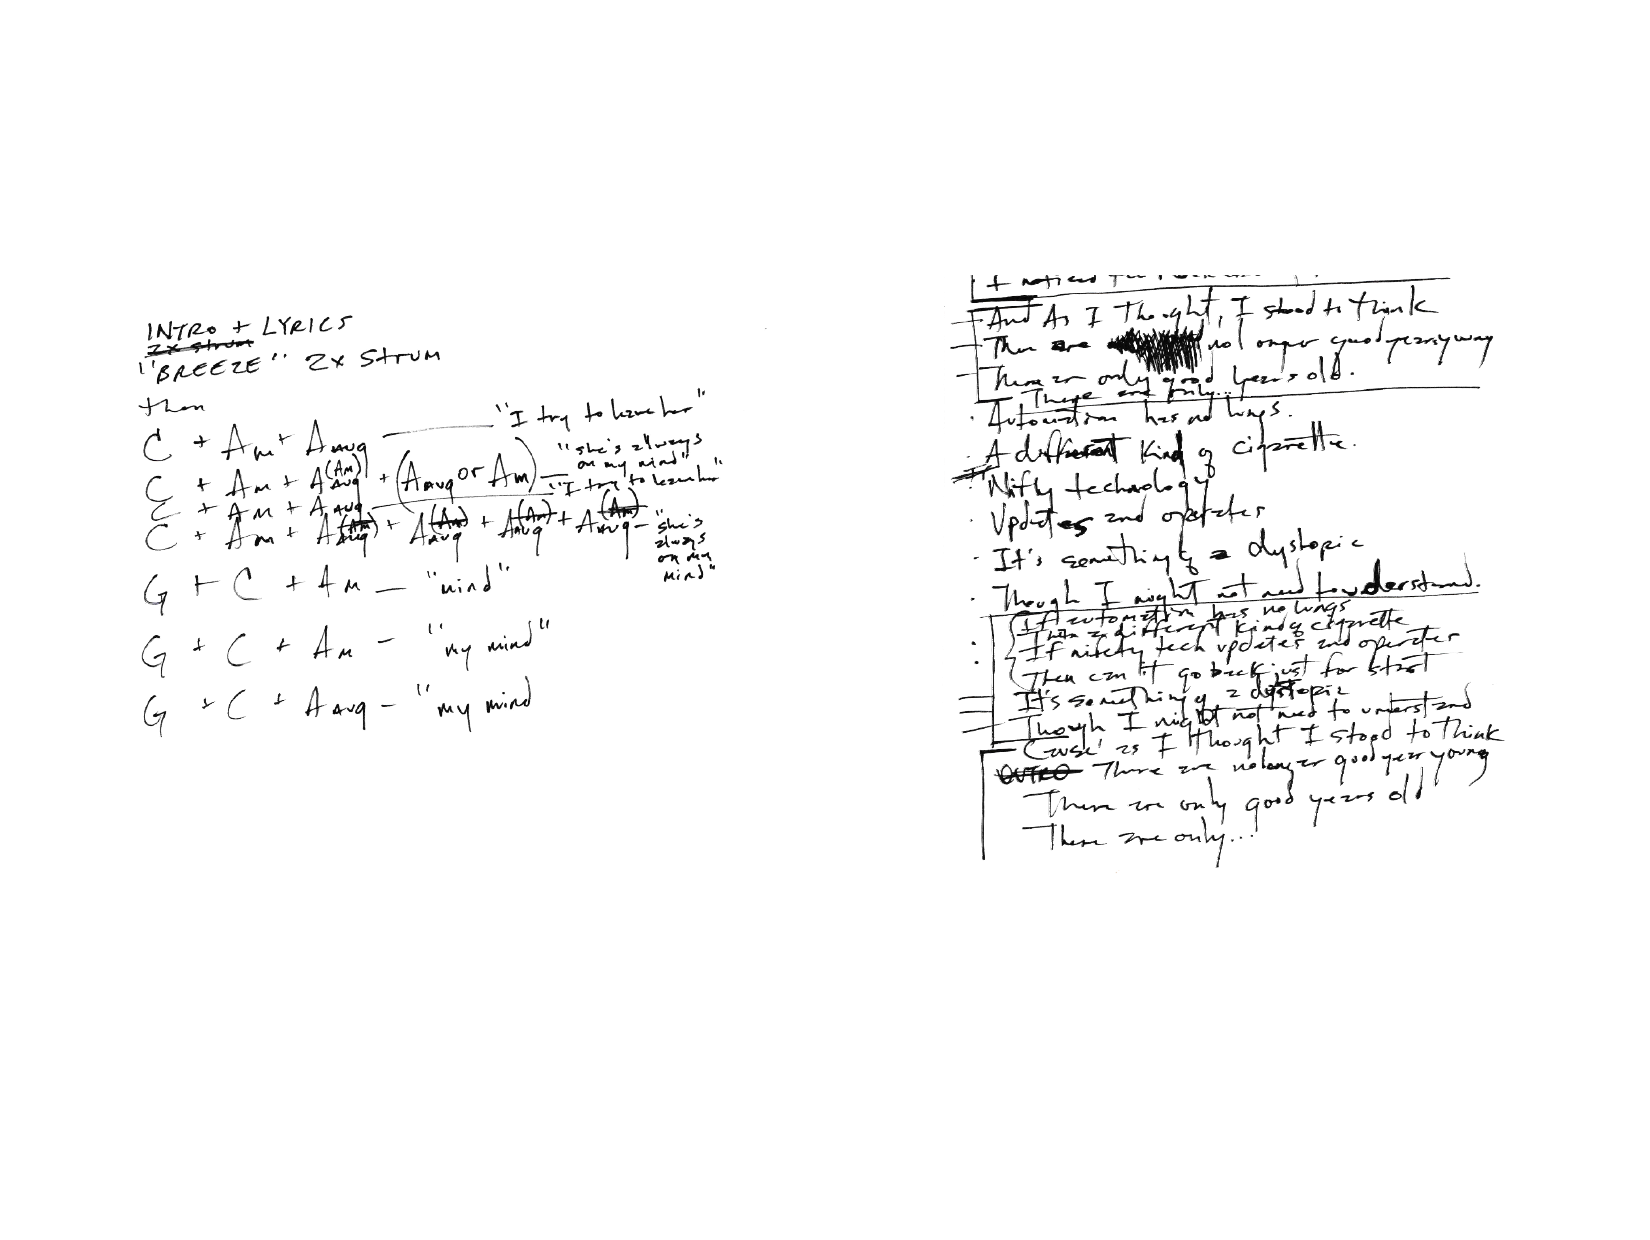 INTRO + LYRICS
2x strum
"BREEZE" 2x STRUM
then
C + Am + Aaug — "I try to leave her"
C + Am + Aaug (Am) + (Aaug or Am) — "she's always on my mind"
C + Am + Aaug — "I try to leave her"
C + Am + Aaug (Am) + Aaug (Am) + Aaug (Am) + Aaug (Am) — "she's always on my mind"
G + C + Am — "mind"
G + C + Am — "my mind"
G + C + Aaug — "my mind
I noticed
And As I Thought, I stood to think
There are no longer good years young
There are only good years old.
There are only...
· Automation has no lungs.
· A different kind of cigarette.
· Nifty technology
· Updates and operates
· It's something of a dystopic
· Though I might not need to understand.
If automation has no lungs
Then a different kind of cigarette
If nifety tech updates and operates
Then can it go back just for
It's something of a dystopic
Though I might not need to understand
Cause' as I thought I stood to think
OUTRO There are no longer good year young
There are only good years old
There are only...